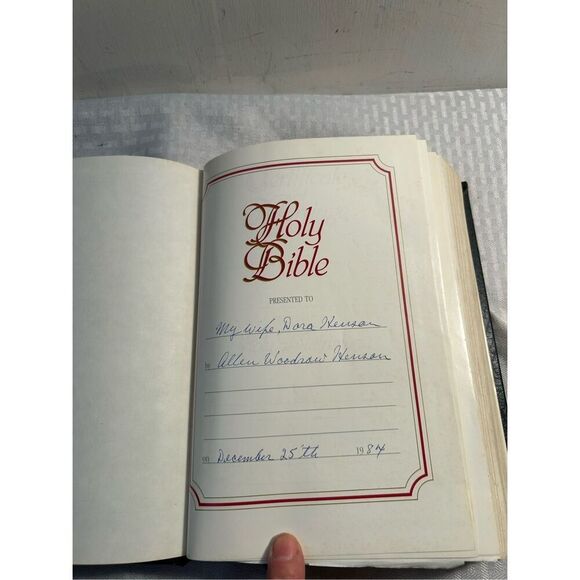 Holy
Bible
PRESENTED TO
My Wife, Dora Henson
by Allen Woodrow Henson
on December 25th 1984